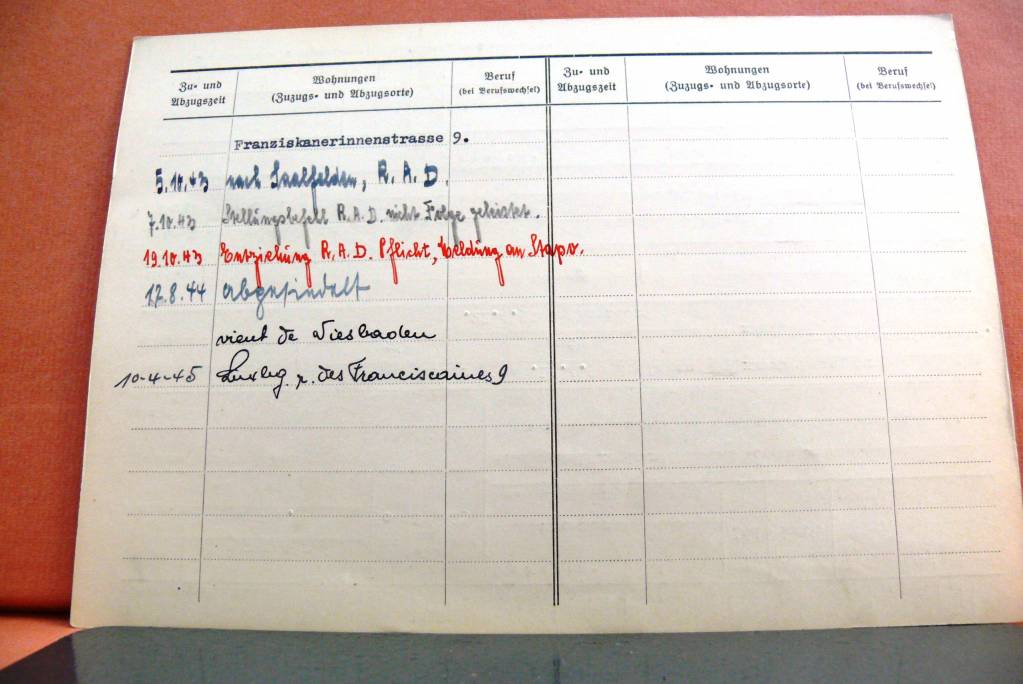 Zu- und Abzugszeit
Wohnungen (Zuzugs- und Abzugsorte)
Beruf (bei Berufswechsel)
Zu- und Abzugszeit
Wohnungen (Zuzugs- und Abzugsorte)
Beruf (bei Berufswechsel)
Franziskanerinnenstrasse 9.
5.10.43 nach Saalfelden, R.A.D.
7.10.43 Stellungsbefehl R.A.D. nicht Folge geleistet.
19.10.43 Entziehung R.A.D. Pflicht, Meldung an Stapo.
17.8.44 abgesiedelt
vient de Wiesbaden
10-4-45 Luxbg. r. des Franciscaines 9